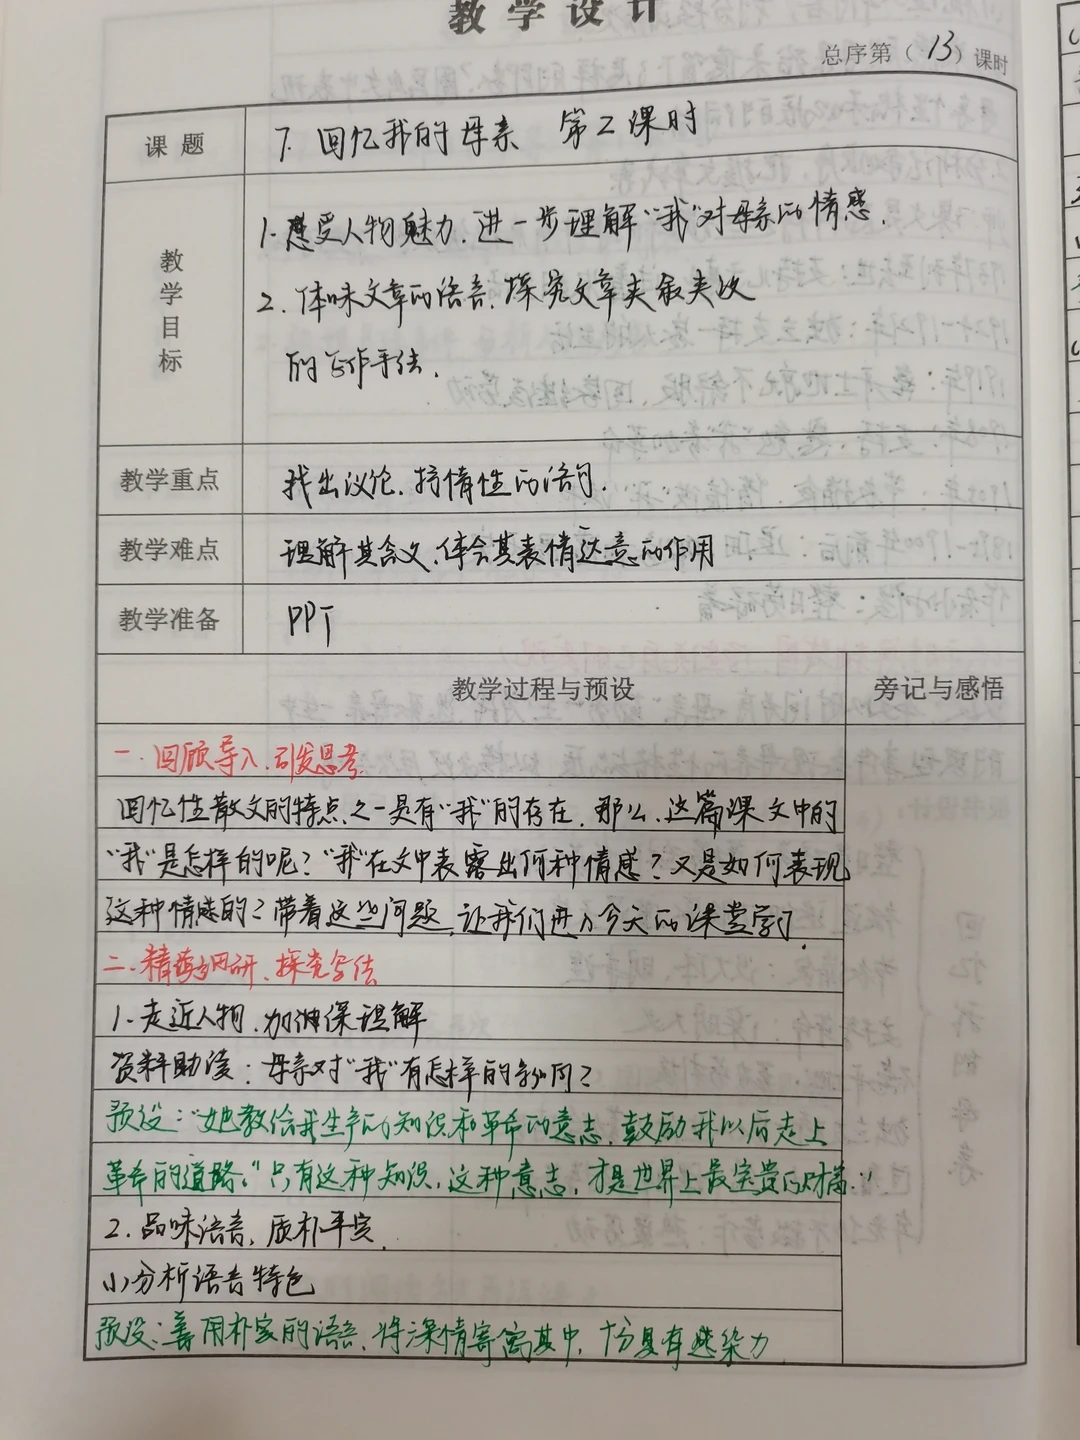 教学设计
总序第（13）课时
课题
7. 回忆我的母亲 第2课时
教学目标
1. 感受人物魅力, 进一步理解“我”对母亲的情感.
2. 体味文章的语言, 探究文章夹叙夹议
的写作手法.
教学重点
找出议论、抒情性的语句.
教学难点
理解其含义、体会其表情达意的作用
教学准备
PPT
教学过程与预设
旁记与感悟
一. 回顾导入, 引发思考
回忆性散文的特点之一是有“我”的存在. 那么, 这篇课文中的
“我”是怎样的呢? “我”在文中表露出何种情感? 又是如何表现
这种情感的? 带着这些问题, 让我们进入今天的课堂学习.
二. 精读细研、探究写法
1. 走近人物, 加深理解
资料助读: 母亲对“我”有怎样的影响?
预设: “她教给我生产的知识和革命的意志, 鼓励我以后走上
革命的道路。”只有这种知识, 这种意志, 才是世界上最宝贵的财富.”
2. 品味语言, 质朴平实.
(1) 分析语言特色
预设: 善用朴实的语言, 将深情寄寓其中, 十分具有感染力.